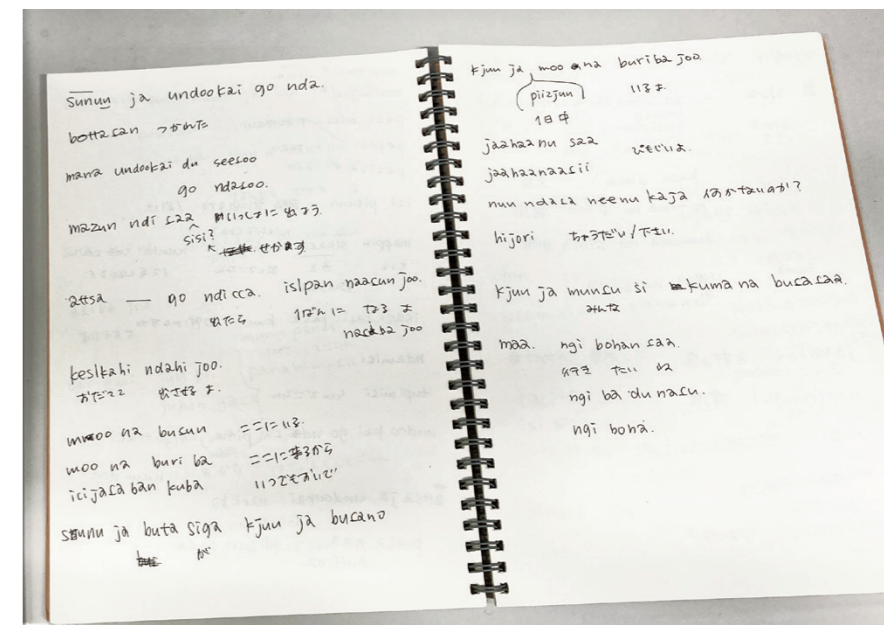 sunuu ja undookai go nda.
bottasan つかれた
mana undookai du seesoo
go ndasoo.
mazun ndi saa いっしょに 出よう
sisi?
attsa — go ndicca. islpan naasun joo.
出たら 1ばんに なる よ
nasiba joo
keslkahi ndahi joo.
おだてて 出させる よ.
moo na busun ここにいる
moo na buri ba ここに来るから
icijasa ban kuba いつでもおいで
sunu ja buta siga kjuu ja busano
が
kjuu ja moo na buriba joo.
piizjun いるよ
1日中
jaahaanu saa ひもじいよ.
jaahaanaasii
nuu ndasa neenu kaja 何かないのか?
hijori ちょうだい/下さい.
kjuu ja munsu si kuma na busasaa.
みんな
maa. ngi bohan saa.
行き たい ね
ngi ba du nasu.
ngi boha.